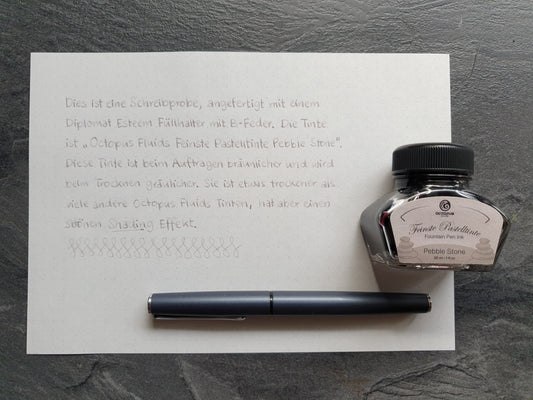 Dies ist eine Schreibprobe, angefertigt mit einem
Diplomat Esteem Füllhalter mit B-Feder. Die Tinte
ist „Octopus Fluids Feinste Pastelltinte Pebble Stone".
Diese Tinte ist beim Auftragen bräunlicher und wird
beim Trocknen gräulicher. Sie ist etwas trockener als
viele andere Octopus Fluids Tinten, hat aber einen
schönen Shading Effekt.
OCTOPUS
Feinste Pastelltinte
Fountain Pen Ink
Pebble Stone
30 ml · 1 fl oz